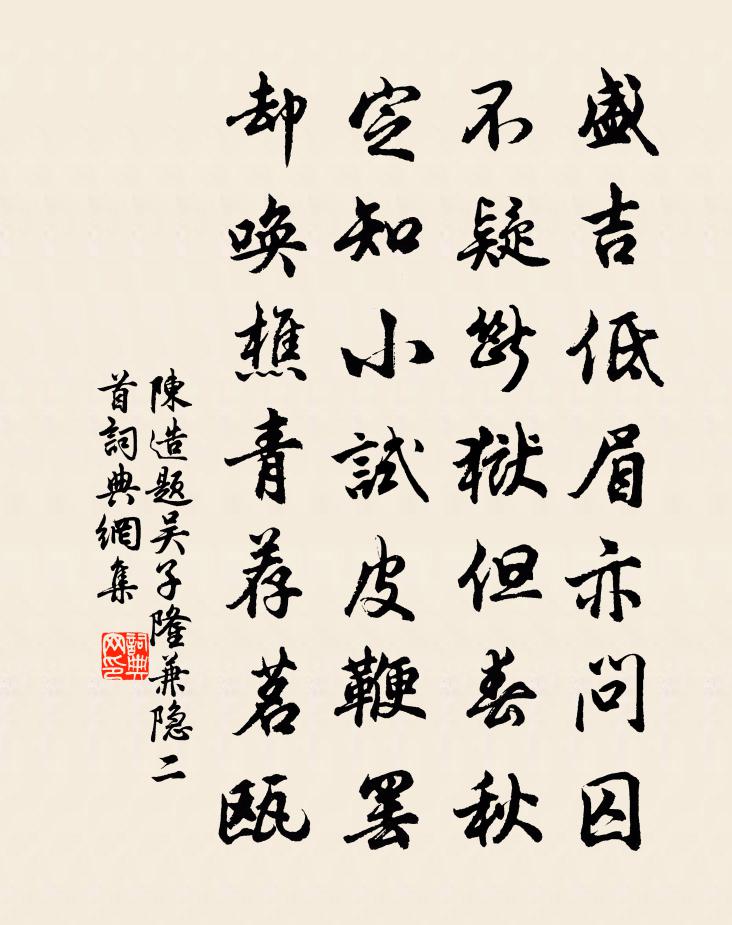 盛吉低眉亦问囚
不疑斷獄但春秋
定知小試皮鞭罢
却唤樵青荐茗瓯
陳造题吴子隆兼隐二
首詞典網集
詞典
网印